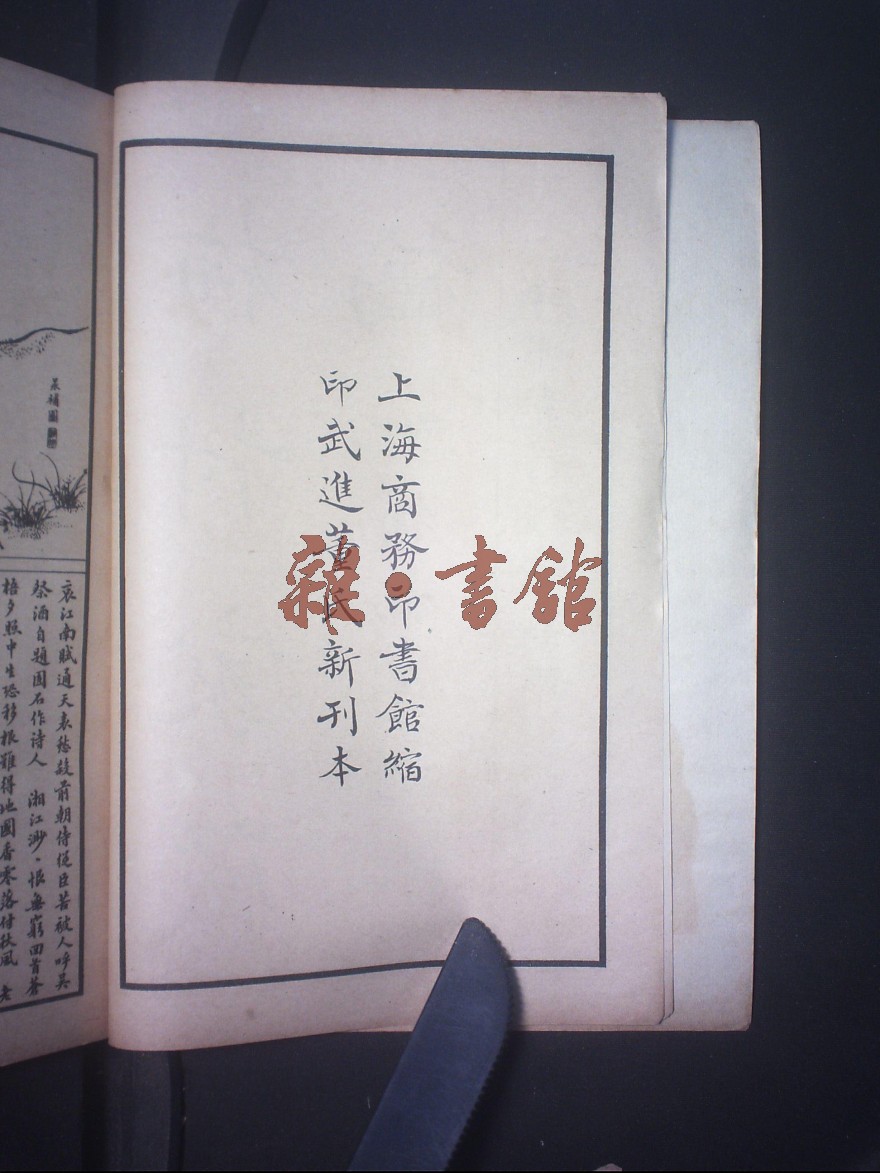 上海商務印書館縮
印武進董氏新刊本
雜·書館
哀江南賦通天表愁敌前朝侍從臣若被人呼吳
祭酒自題圓石作诗人 湘江渺、恨無窮回首蒼
梧夕照中生恐移根難得地國香零落付秋風